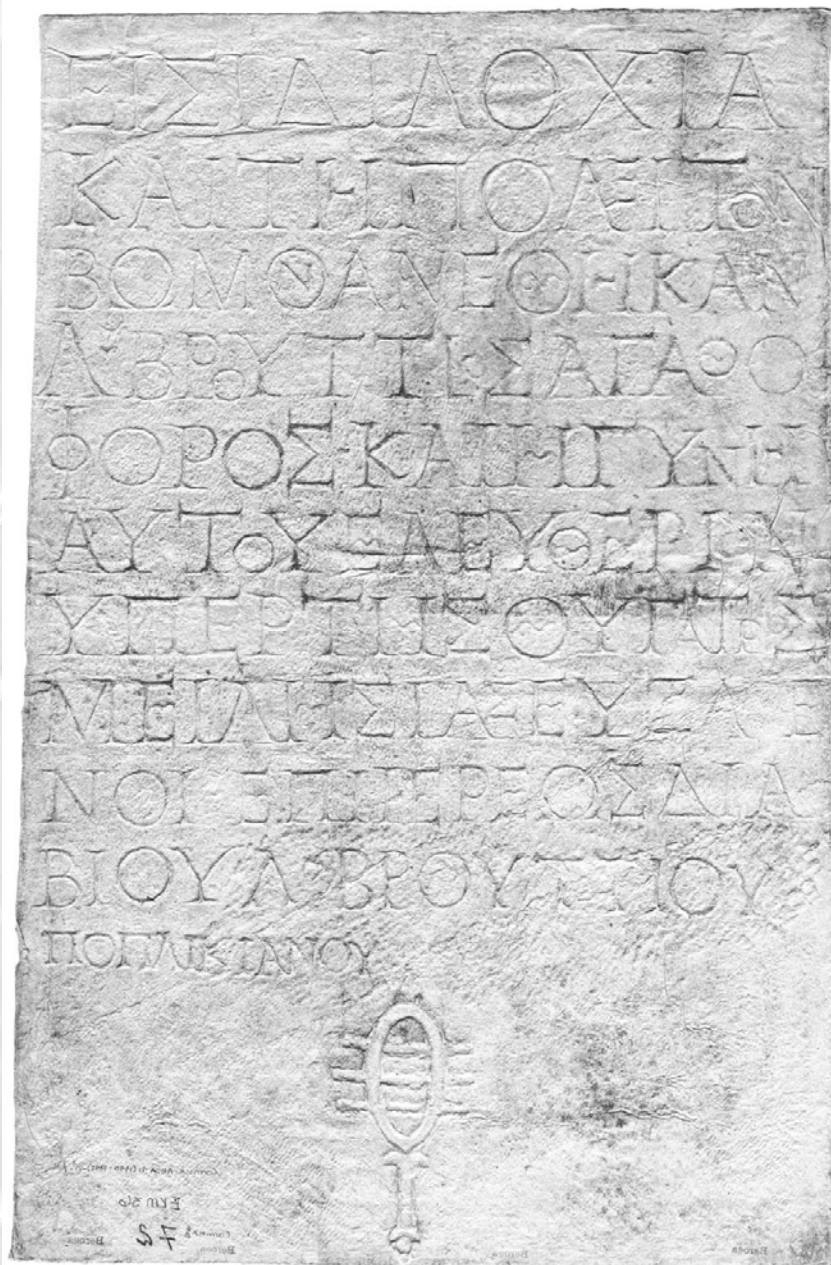 ΕΙΣΙΔΙΛΟΧΙΑ
ΚΑΙΤΗΠΟΛΕΙΤΟΝ
ΒΟΜΟΝΑΝΕΘΗΚΑΝ
Λ ΒΡΟΥΤΤΙΟΣΑΓΑΘΟ
ΦΟΡΟΣΚΑΙΗΓΥΝΗ
ΑΥΤΟΥΕΛΕΥΘΕΡΙΝ
ΥΠΕΡΤΗΣΘΥΓΑΤΡΟΣ
ΜΕΙΛΗΣΙΑΣΕΥΞΑΜΕ
ΝΟΙΕΠΙΙΕΡΕΟΣΔΙΑ
ΒΙΟΥΛ ΒΡΟΥΤΤΙΟΥ
ΠΟΠΛΙΚΙΑΝΟΥ
ΕΚΜ 36
72
Beroea Beroea Beroea Beroea